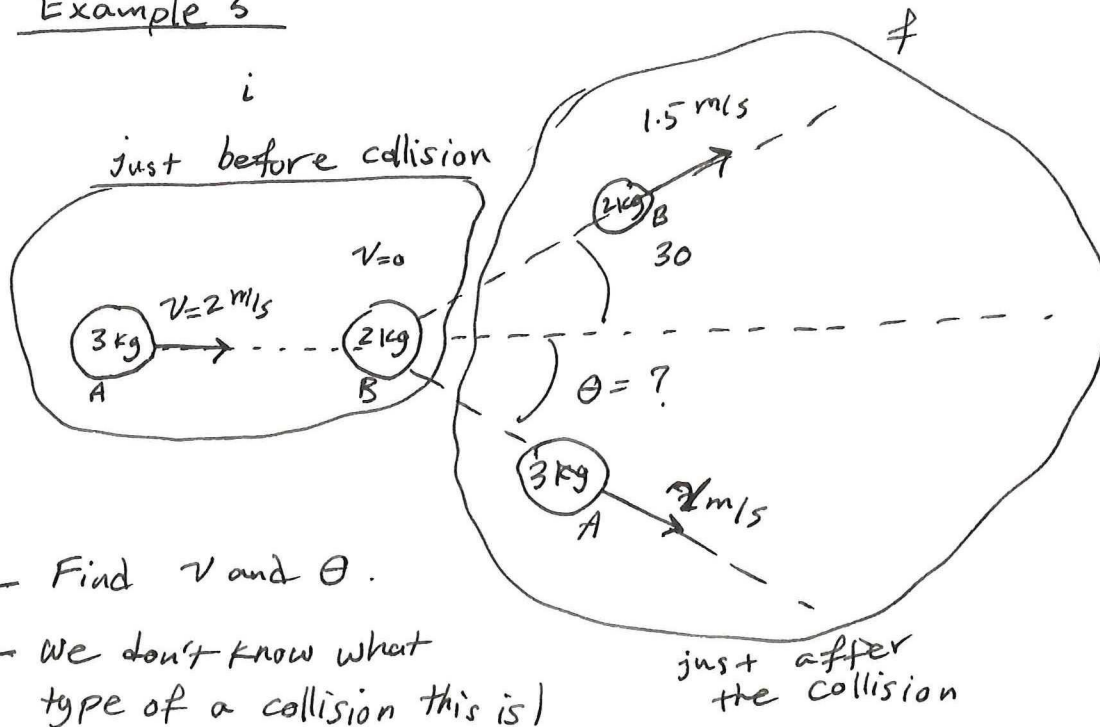 Example 5
i
f
just before collision
1.5 m/s
2kg
B
30
V=0
V=2 m/s
3 kg
A
2kg
B
θ = ?
3 kg
A
m/s
- Find V and θ.
- We don't know what
type of a collision this is)
just after
the collision